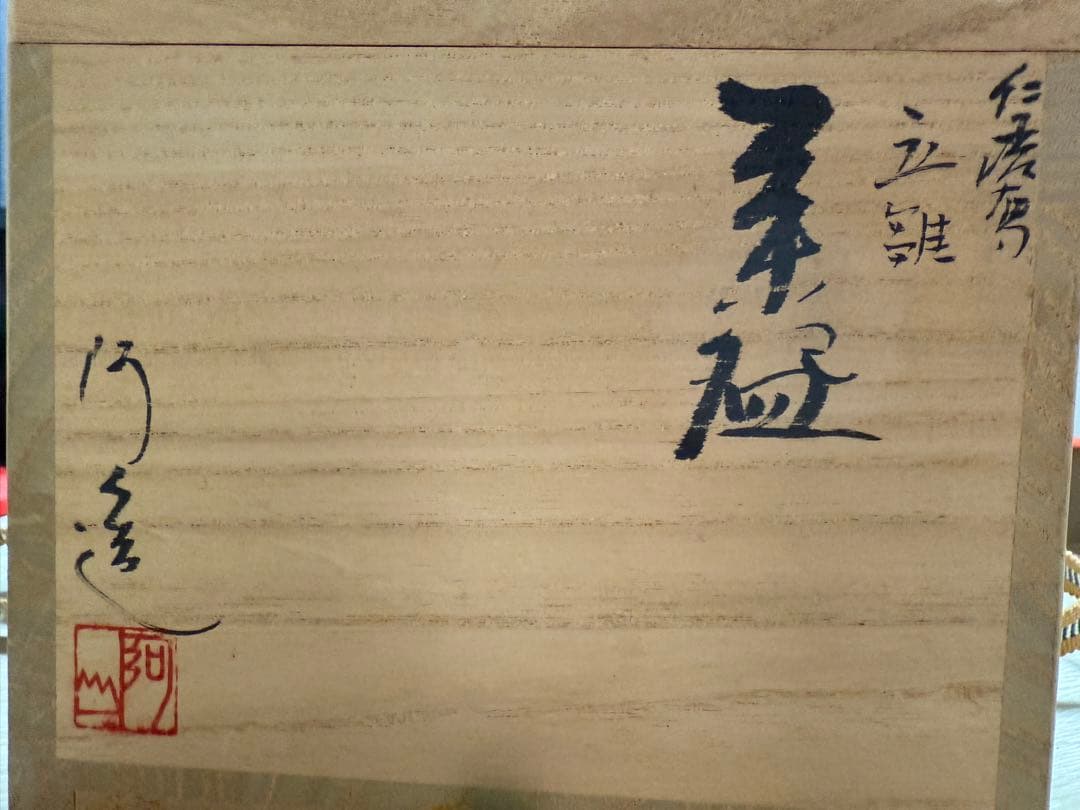 仁清写
立雛
茶盌
阿造
阿